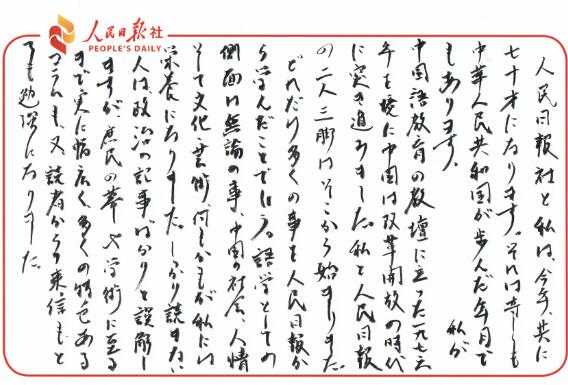 人民日报社
PEOPLE'S DAILY
人民日報社と私は、今年、共に
七十才になります。それは奇しくも
中華人民共和国が歩んだ年月で
もあります。 私が
中国語教育の教壇に立った一九七六
年を境に中国は改革開放の時代
に突き進みました。私と人民日報
の二人三脚はそこから始まりました。
どれだけ多くの事を人民日報か
ら学んだことでしょう。語学としての
側面は無論の事、中国の社会、人情
そして文化、芸術何もかもが私には
栄養になりました。しっかり読まない
人は、政治の記事ばかりと誤解し
ますが、庶民の夢や学術に至る
まで実に幅広く、多くの特色ある
コラムも、又、読者からの来信もと
ても勉強になりました。